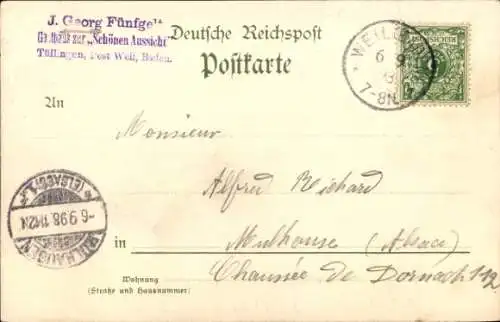 J. Georg Fünfge
Gasthaus zur „Schönen Aussicht"
Tüllingen, Post Weil, Baden.
Deutsche Reichspost
Postkarte
WEIL
6 9
7-8N.
An
Monsieur
Alfred Reichard
in Mulhouse (Alsace)
Chaussée de Dornach 112
Wohnung
(Straße und Hausnummer)
MÜLHAUSEN
-6.9.98.11-12N.
(ELSASS) 1.